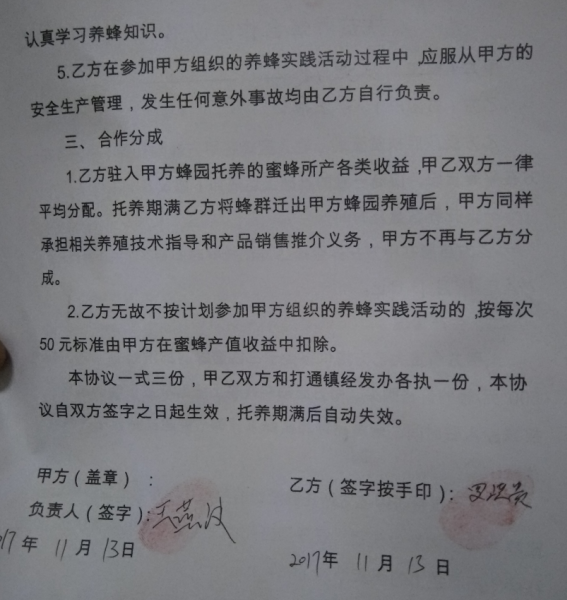 认真学习养蜂知识。
5.乙方在参加甲方组织的养蜂实践活动过程中,应服从甲方的
安全生产管理，发生任何意外事故均由乙方自行负责。
三、合作分成
1.乙方驻入甲方蜂园托养的蜜蜂所产各类收益,甲乙双方一律
平均分配。托养期满乙方将蜂群迁出甲方蜂园养殖后，甲方同样
承担相关养殖技术指导和产品销售推介义务，甲方不再与乙方分
成。
2.乙方无故不按计划参加甲方组织的养蜂实践活动的,按每次
50元标准由甲方在蜜蜂产值收益中扣除。
本协议一式三份，甲乙双方和打通镇经发办各执一份，本协
议自双方签字之日起生效，托养期满后自动失效。
甲方（盖章）：
乙方（签字按手印）：
负责人（签字）：
17年 11月 13日
2017年 11月 13日